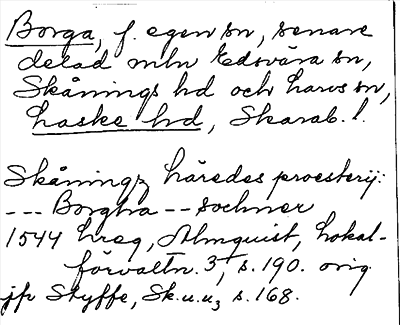 Borga, f. egen sn, senare
delad mln Edsvära sn,
Skånings hd och Larvs sn,
Laske hd, Skarab. l.
Skåningz häredes proesterij:
--- Borgha -- sochner
1544 hreg, Almquist, Lokal-
förvaltn. 3, s. 190. orig.
jfr Styffe, Sk.u.u, s. 168.